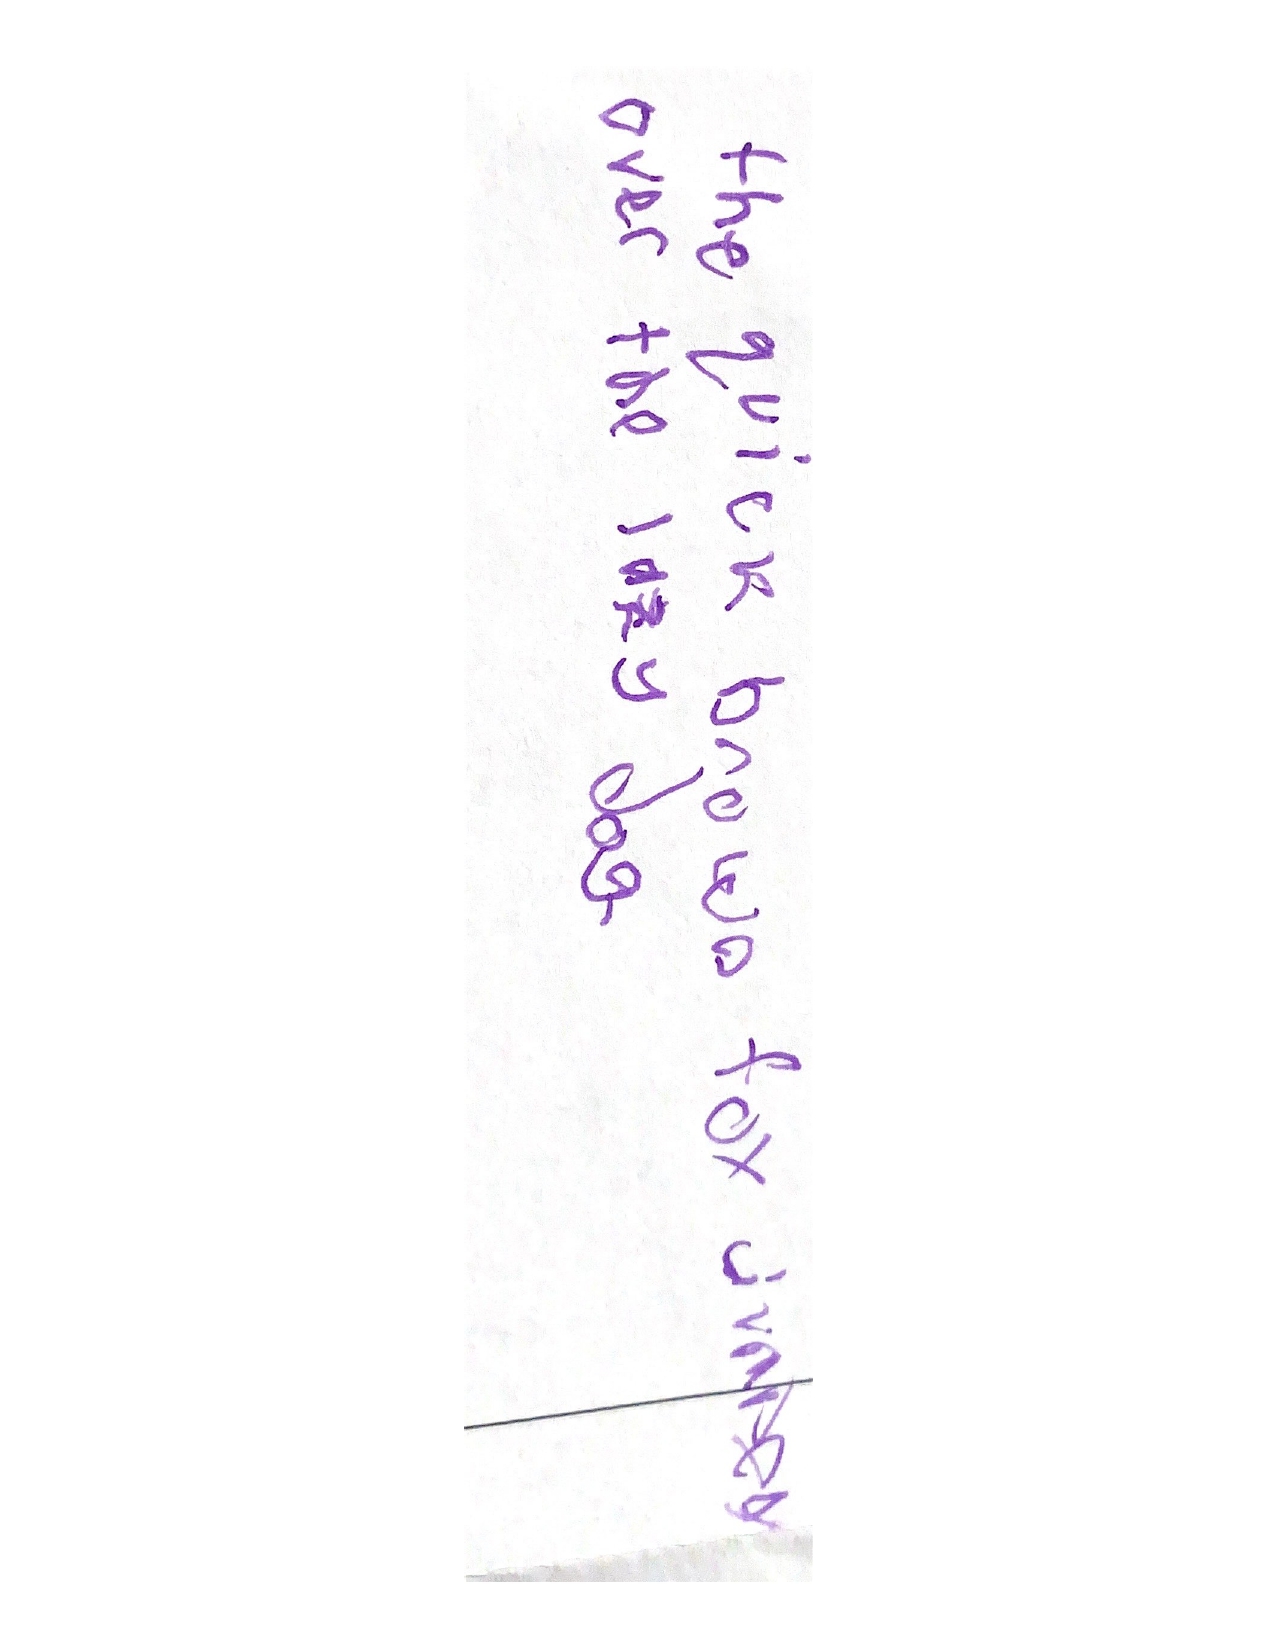 the quick brown fox
over the lazy dog